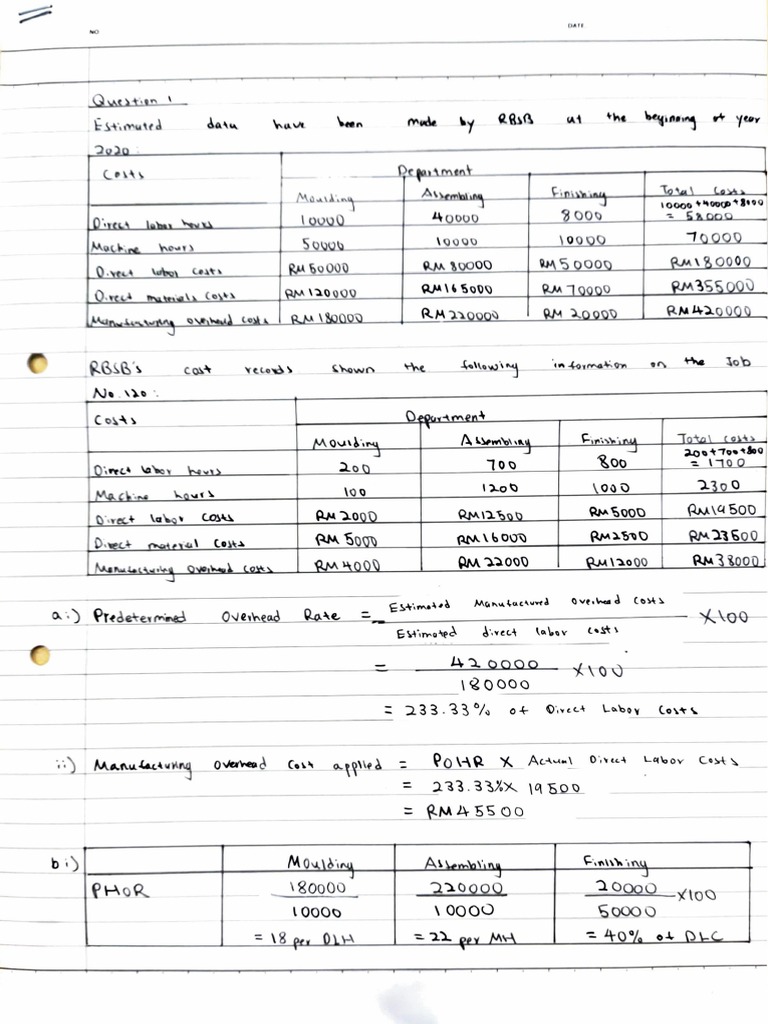 NO
DATE
Question 1
Estimated data have been made by RBSB at the beginning of year
2020:
Costs Department
Moulding Assembling Finishing Total Costs
Direct labor hours 10000 40000 8000 10000+40000+8000 = 58000
Machine hours 50000 10000 10000 70000
Direct labor costs RM 50000 RM 80000 RM 50000 RM180000
Direct materials costs RM120000 RM165000 RM 70000 RM355000
Manufacturing overhead costs RM 180000 RM220000 RM 20000 RM420000
RBSB's cost records shown the following information on the Job
No.120:
Costs Department
Moulding Assembling Finishing Total costs
Direct labor hours 200 700 800 200+700+800 = 1700
Machine hours 100 1200 1000 2300
Direct labor costs RM2000 RM12500 RM5000 RM19500
Direct material costs RM 5000 RM16000 RM2500 RM23500
Manufacturing overhead costs RM 4000 RM 22000 RM12000 RM38000
a i) Predetermined Overhead Rate = Estimated Manufactured overhead costs
Estimated direct labor costs X100
= 420000
180000 X100
= 233.33% of Direct Labor Costs
ii) Manufacturing overhead cost applied = POHR X Actual Direct Labor Costs
= 233.33% X 19500
= RM45500
b i) Moulding Assembling Finishing
PHOR 180000 220000 20000 X100
10000 10000 50000
= 18 per DLH = 22 per MH = 40% of DLC